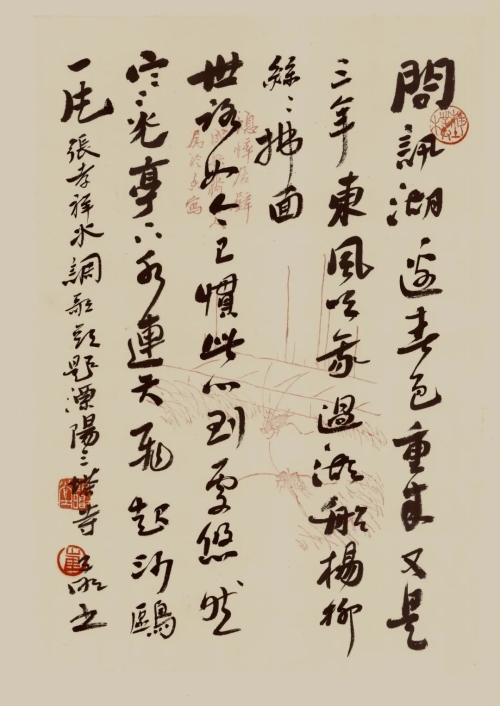 問訊湖邊春色重來又是
三年東風吹我過湖船楊柳
絲〻拂面
世路如今已慣此心到處悠然
寒光亭下水連天飛起沙鷗
一片 張孝祥水調歌頭題溧陽三塔寺